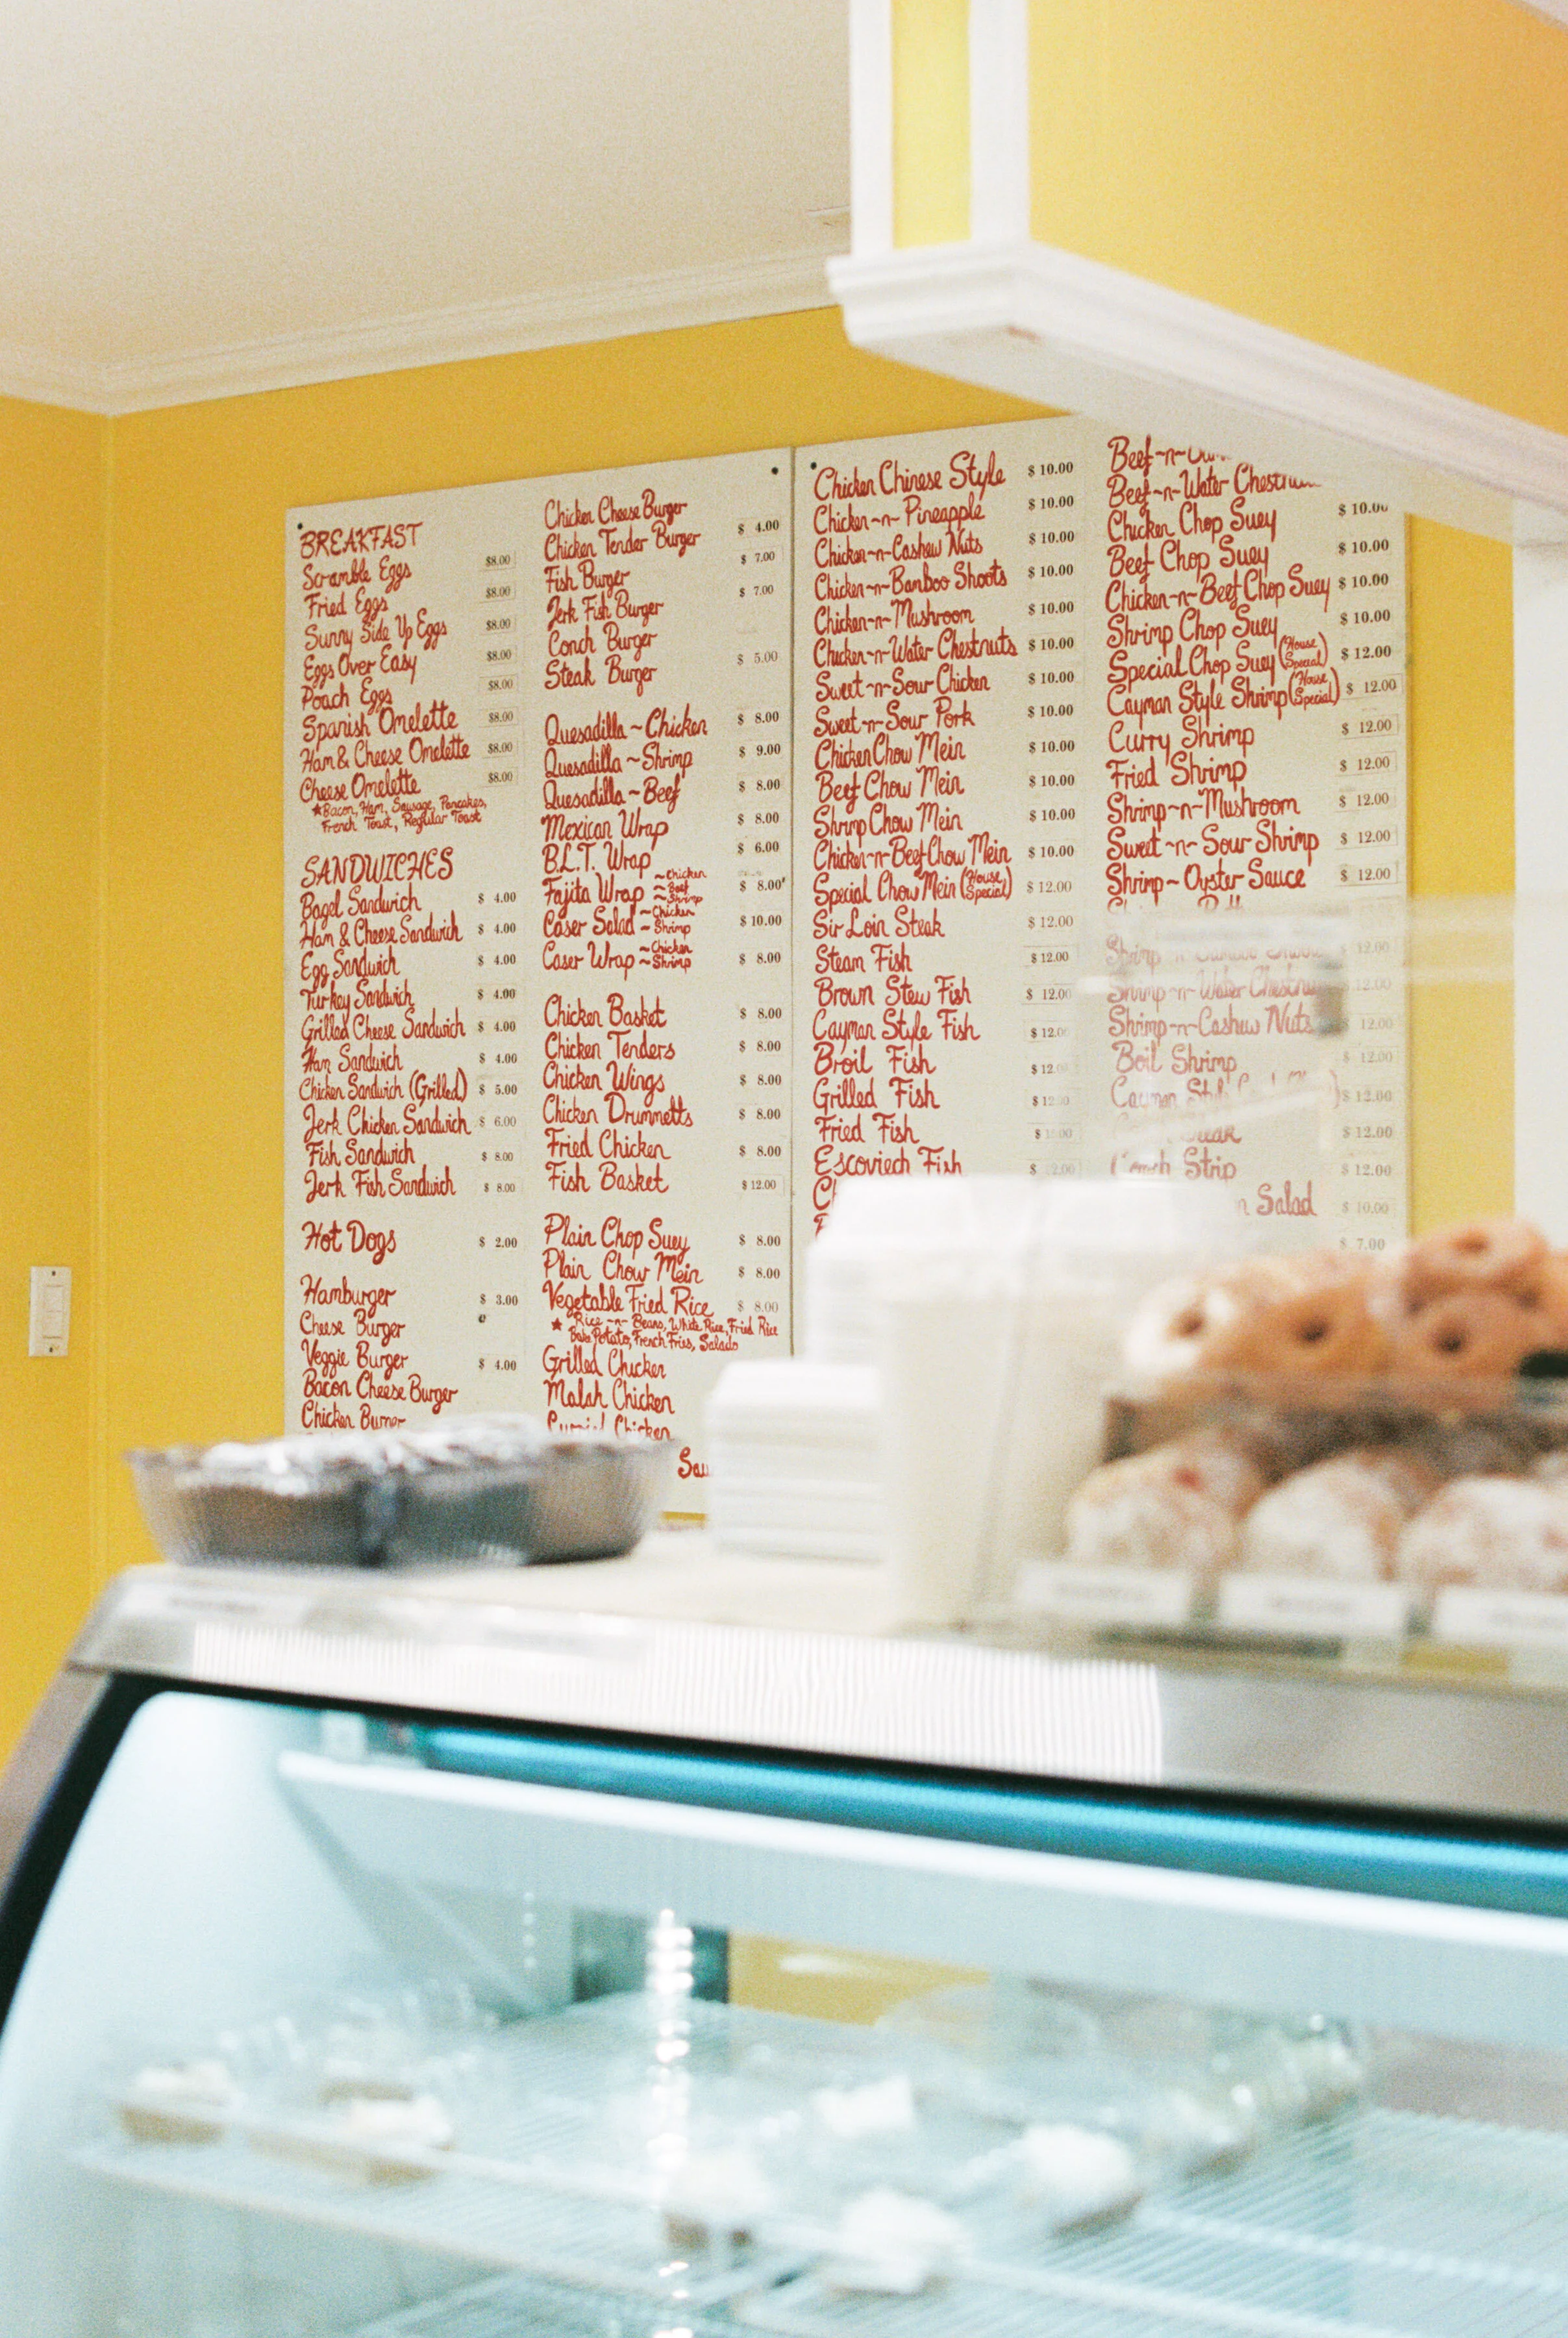 BREAKFAST
Scramble Eggs $8.00
Fried Eggs $8.00
Sunny Side Up Eggs $8.00
Eggs Over Easy $8.00
Poach Eggs $8.00
Spanish Omelette $8.00
Ham & Cheese Omelette $8.00
Cheese Omelette $8.00
★Bacon, Ham, Sausage, Pancakes,
French Toast, Regular Toast
SANDWICHES
Bagel Sandwich $ 4.00
Ham & Cheese Sandwich $ 4.00
Egg Sandwich $ 4.00
Turkey Sandwich $ 4.00
Grilled Cheese Sandwich $ 4.00
Ham Sandwich $ 4.00
Chicken Sandwich (Grilled) $ 5.00
Jerk Chicken Sandwich $ 6.00
Fish Sandwich $ 8.00
Jerk Fish Sandwich $ 8.00
Hot Dogs $ 2.00
Hamburger $ 3.00
Cheese Burger
Veggie Burger $ 4.00
Bacon Cheese Burger
Chicken Burger
Chicken Cheese Burger
Chicken Tender Burger $ 4.00
Fish Burger $ 7.00
Jerk Fish Burger $ 7.00
Conch Burger
Steak Burger $ 5.00
Quesadilla ~ Chicken $ 8.00
Quesadilla ~ Shrimp $ 9.00
Quesadilla ~ Beef $ 8.00
Mexican Wrap $ 8.00
B.L.T. Wrap $ 6.00
Fajita Wrap ~Chicken ~Beef ~Shrimp $ 8.00
Caser Salad ~Chicken ~Shrimp $ 10.00
Caser Wrap ~Chicken ~Shrimp $ 8.00
Chicken Basket $ 8.00
Chicken Tenders $ 8.00
Chicken Wings $ 8.00
Chicken Drummetts $ 8.00
Fried Chicken $ 8.00
Fish Basket $ 12.00
Plain Chop Suey $ 8.00
Plain Chow Mein $ 8.00
Vegetable Fried Rice $ 8.00
★ Rice ~n~ Beans, White Rice, Fried Rice
Bake Potato, French Fries, Salads
Grilled Chicken
Malah Chicken
Chicken
Chicken Chinese Style $ 10.00
Chicken~n~Pineapple $ 10.00
Chicken~n~Cashew Nuts $ 10.00
Chicken~n~Banboo Shoots $ 10.00
Chicken~n~Mushroom $ 10.00
Chicken~n~Water Chestnuts $ 10.00
Sweet~n~Sour Chicken $ 10.00
Sweet~n~Sour Pork $ 10.00
Chicken Chow Mein $ 10.00
Beef Chow Mein $ 10.00
Shrimp Chow Mein $ 10.00
Chicken~n~Beef Chow Mein $ 10.00
Special Chow Mein (House Special) $ 12.00
Sir Loin Steak $ 12.00
Steam Fish $ 12.00
Brown Stew Fish $ 12.00
Cayman Style Fish $ 12.0
Broil Fish $ 12
Grilled Fish $ 12
Fried Fish $
Escoviech Fish $
Beef~n~
Beef~n~Water
Chicken Chop Suey $ 10.00
Beef Chop Suey $ 10.00
Chicken~n~Beef Chop Suey $ 10.00
Shrimp Chop Suey $ 10.00
Special Chop Suey (House Special) $ 12.00
Cayman Style Shrimp (House Special) $ 12.00
Curry Shrimp $ 12.00
Fried Shrimp $ 12.00
Shrimp~n~Mushroom $ 12.00
Sweet~n~Sour Shrimp $ 12.00
Shrimp~Oyster Sauce $ 12.00
Shrimp $ 12.00
Shrimp~n~Water $ 12.00
Shrimp~n~Cashew Nuts $ 12.00
Boil Shrimp $ 12.00
Cayman $ 12.00
$ 12.00
Strip $ 12.00
Salad $ 10.00
$ 7.00